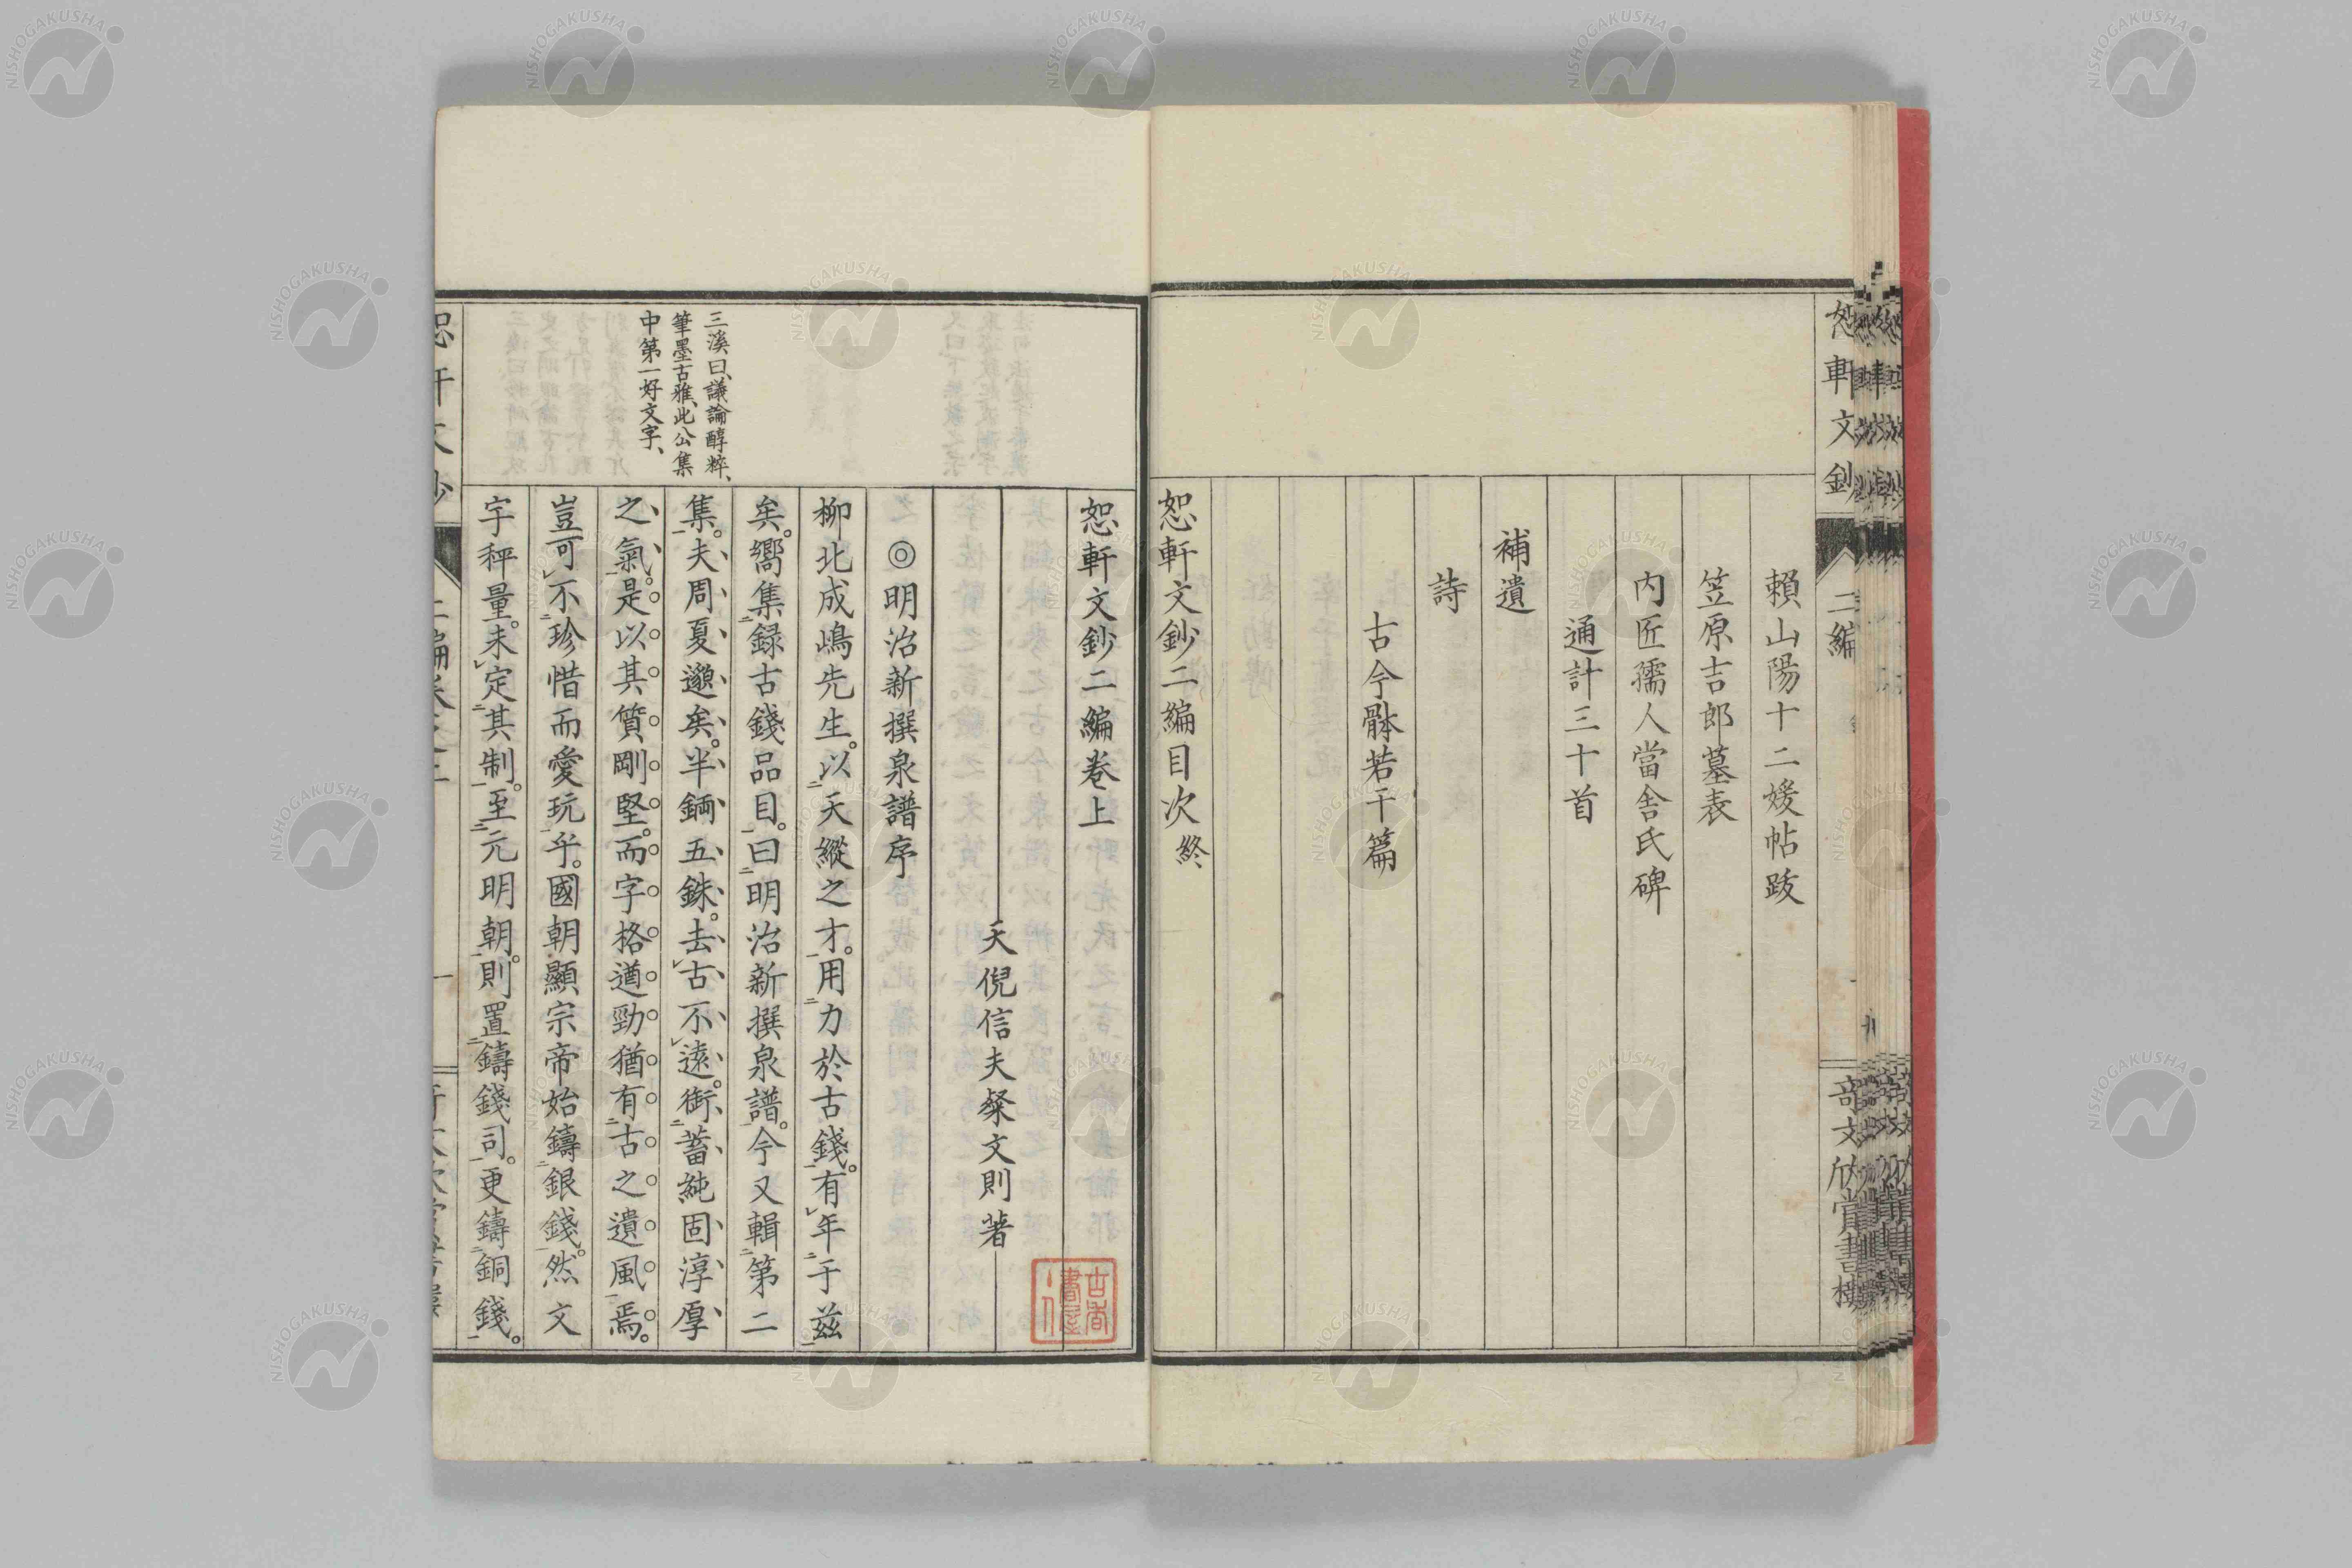 恕軒文鈔
二編
奇文欣賞書樓
賴山陽十二媛帖跋
笠原吉郎墓表
内匠孺人當舍氏碑
通計三十首
補遺
詩
古今骵若干篇
恕軒文鈔二編目次終
恕軒文鈔二編卷上
天倪信夫粲文則著
◎明治新撰泉譜序
柳北成嶋先生。以天縱之才。用力於古錢。有年于兹
矣。嚮集録古錢品目。曰明治新撰泉譜。今又輯第二
集。夫周夏邈矣。半鋼五銖。去古不遠。銜蓄純固淳厚
之氣。是以其質剛堅。而字格遒勁。猶有古之遺風焉。
豈可不珍惜而愛玩乎。國朝顯宗帝始鑄銀錢。然文
字秤量。未定其制。至元明朝。則置鑄錢司。更鑄銅錢。
三溪曰、議論醇粹、
筆墨古雅、此公集
中第一好文字、
NISHOGAKUSHA